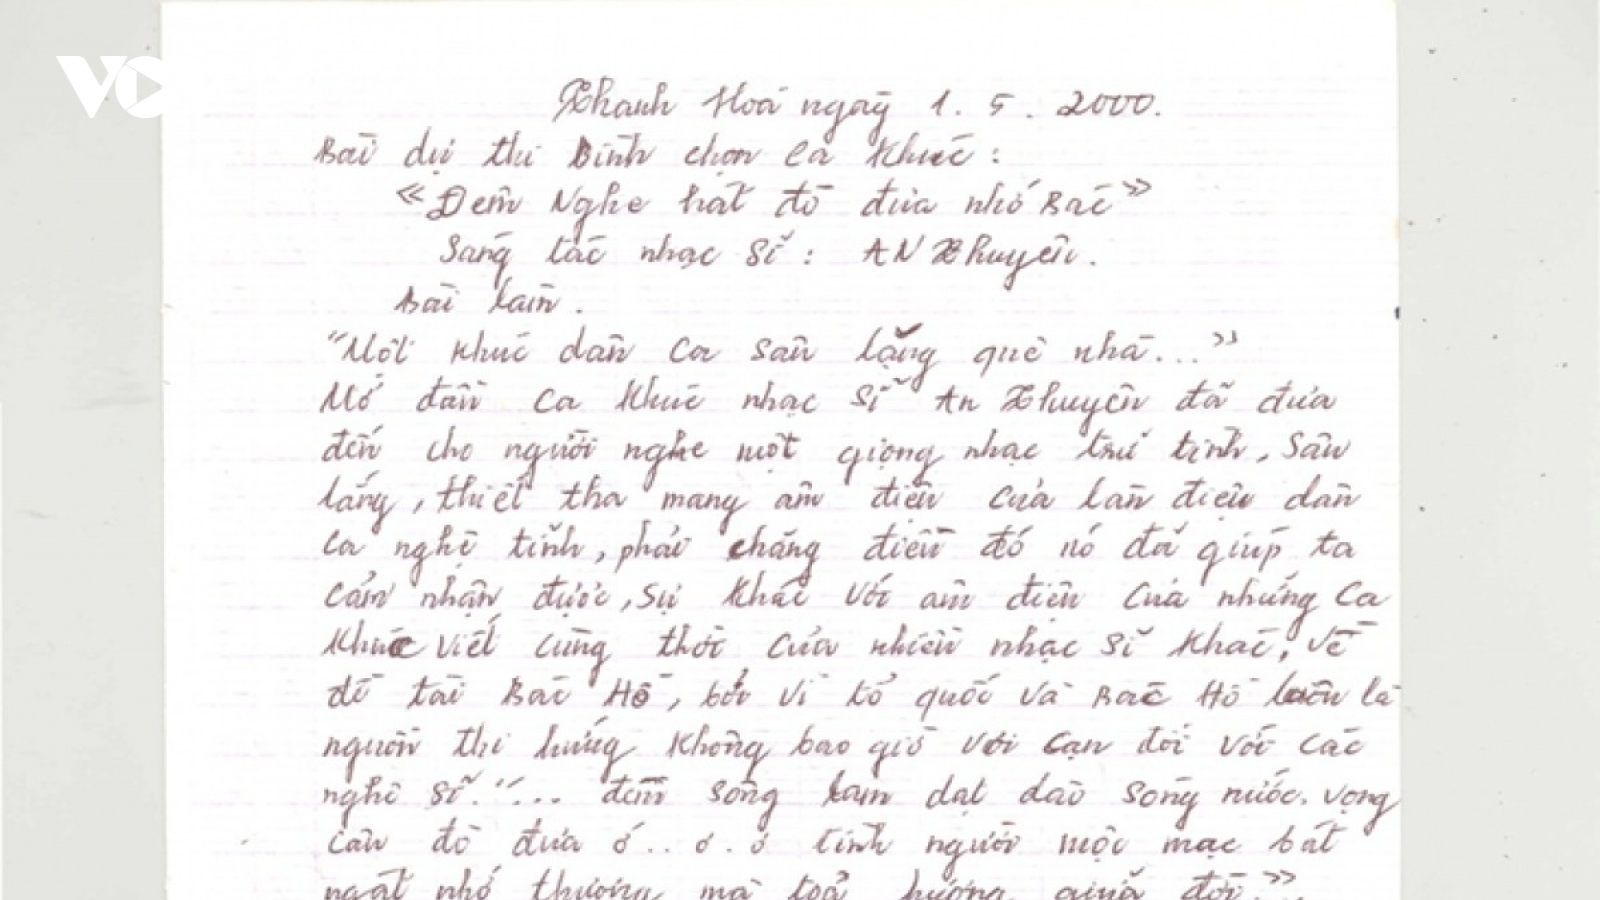 VO
Thanh Hoá ngày 1.5.2000.
Bài dự thi Bình chọn ca khúc:
«Đêm Nghe hát đò đưa nhớ Bác»
Sáng tác nhạc sĩ: AN Thuyên.
Bài làm.
"Một khúc dân ca sâu lặng quê nhà..."
Mở đầu ca khúc nhạc sĩ An Thuyên đã đưa
đến cho người nghe một giọng nhạc trữ tình, sâu
lắng, thiết tha mang âm điệu của làn điệu dân
ca nghệ tĩnh, phải chăng điều đó nó đã giúp ta
cảm nhận được, sự khác với âm điệu của những ca
khúc viết cùng thời của nhiều nhạc sĩ khác, về
đề tài Bác Hồ, bởi vì tổ quốc và Bác Hồ luôn là
nguồn thi hứng không bao giờ vơi cạn đối với các
nghệ sĩ."... đêm sông lam dạt dào sóng nước. vọng
câu đò đưa ớ..ơ.ơ tình người mộc mạc bát
ngát nhớ thương mà toả hương giữa đời."